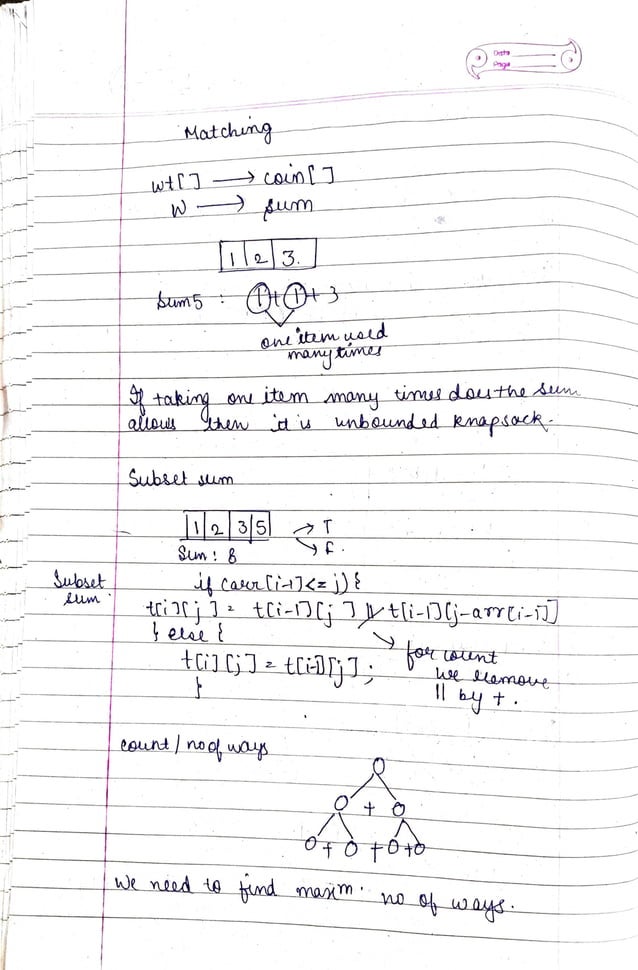 Date
Page
Matching
wt[] → coin[]
W → sum
1 2 3.
Sum5 : 1+1+3
one item used
many times
If taking one item many times does the sum
allows then it is unbounded knapsack.
Subset sum
1 2 3 5 → T
Sum : 8 → F.
Subset sum.
if (arr[i-1]<=j){
t[i][j] = t[i-1][j] || t[i-1][j-arr[i-1]]
} else {
t[i][j] = t[i-1][j];
}
for count
we remove
|| by +.
count / no of ways
O
O + O
O + O + O + O
We need to find maxim. no of ways.